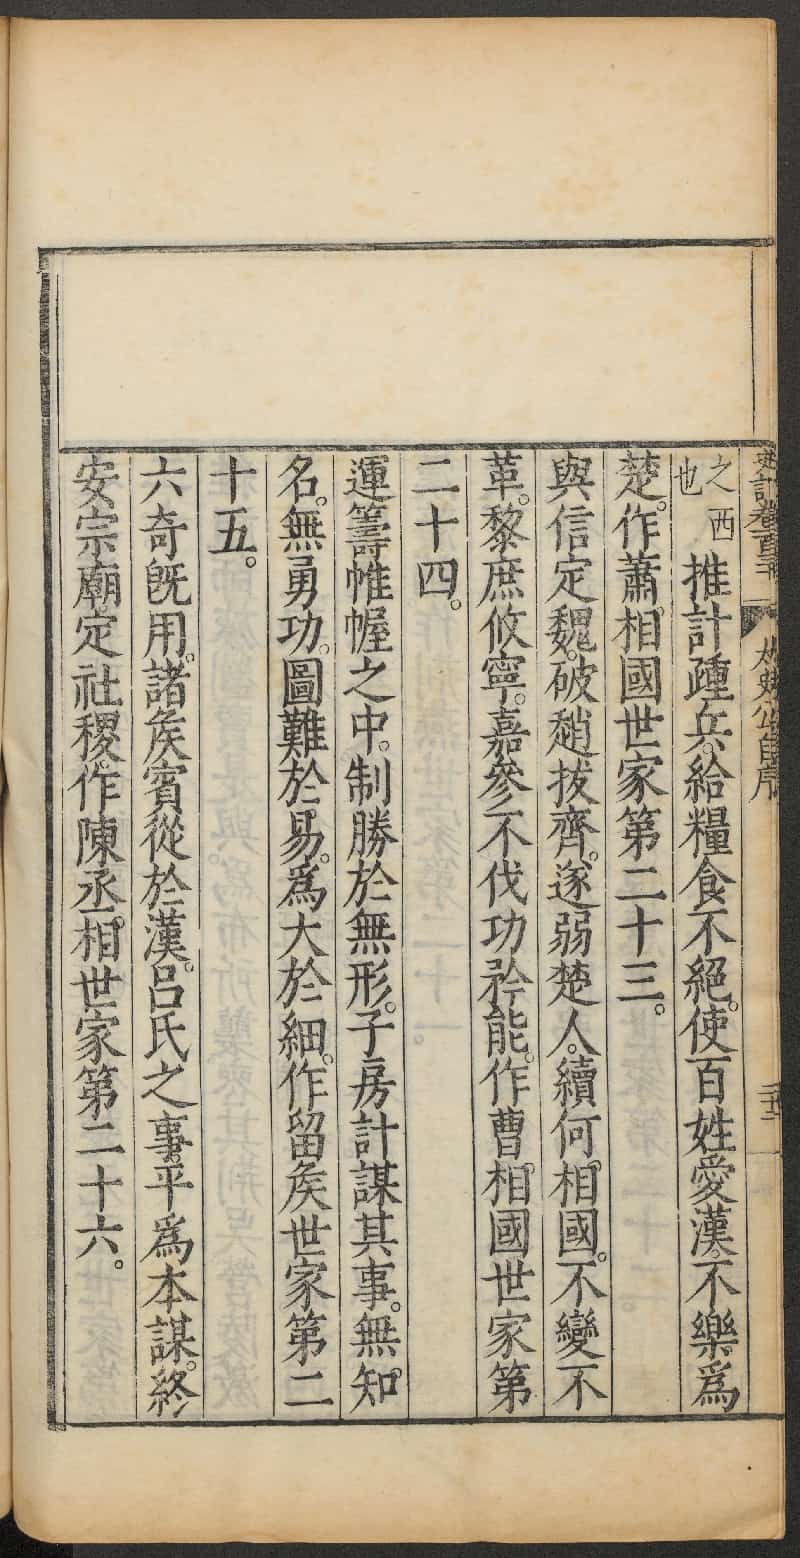 史記卷百三十 太史公自序 二十三
之西也 推計踵兵。給糧食不絕。使百姓愛漢。不樂爲
楚。作蕭相國世家第二十三。
與信定魏。破趙拔齊。遂弱楚人。續何相國。不變不
革。黎庶攸寧。嘉參不伐功矜能。作曹相國世家第
二十四。
運籌帷幄之中。制勝於無形。子房計謀其事。無知
名。無勇功。圖難於易。爲大於細。作留矦世家第二
十五。
六奇旣用。諸矦賓從於漢。呂氏之事。平爲本謀。終
安宗廟。定社稷。作陳丞相世家第二十六。